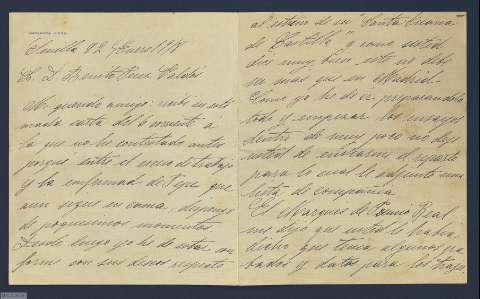 Sevilla 22 Enero 1918
Sr. D. Benito Perez Galdós
Mi querido amigo: recibí su esti
mada carta del 6 corriente á
la que no he contestado antes
porque entre el exceso de trabajo
y la enfermedad de Pepe que
aun sigue en cama, dispongo
de poquísimos momentos.
Desde luego yo he de estar con
forme con sus deseos respecto
al estreno de su "Santa Juana
de Castilla" y como usted
dice muy bien este no debe
ser mas que en Madrid.
Como yo he de ir preparandolo
todo y empezar los ensayos
dentro de muy poco no deje
usted de enviarme el reparto
para lo cual le adjunto una
lista de compañia.
El Marques de Premio Real
me dijo que usted le habia
dicho que tenia algunos gra
bados y datos para los trajes.